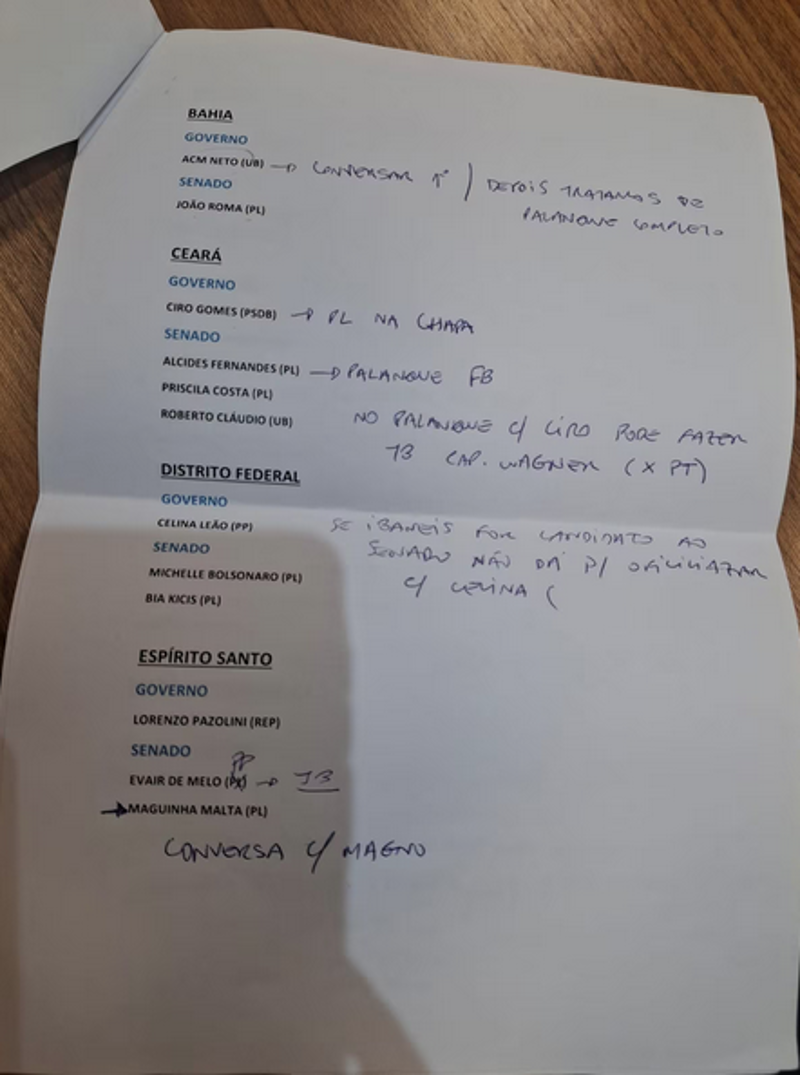 BAHIA
GOVERNO
ACM NETO (UB) → CONVERSAR 1º / DEPOIS TRATAMOS DE
PALANQUE COMPLETO
SENADO
JOÃO ROMA (PL)
CEARÁ
GOVERNO
CIRO GOMES (PSDB) → PL NA CHAPA
SENADO
ALCIDES FERNANDES (PL) → PALANQUE FB
PRISCILA COSTA (PL)
ROBERTO CLÁUDIO (UB)
NO PALANQUE C/ CIRO PODE FAZER
JB CAP. WAGNER (X PT)
DISTRITO FEDERAL
GOVERNO
CELINA LEÃO (PP)
SENADO
MICHELLE BOLSONARO (PL)
BIA KICIS (PL)
SE IBANEIS FOR CANDIDATO AO
SENADO NÃO DÁ P/ OFICILIAZAR
C/ CELINA (
ESPÍRITO SANTO
GOVERNO
LORENZO PAZOLINI (REP)
SENADO
PP
EVAIR DE MELO → JB
→ MAGUINHA MALTA (PL)
CONVERSA C/ MAGNO